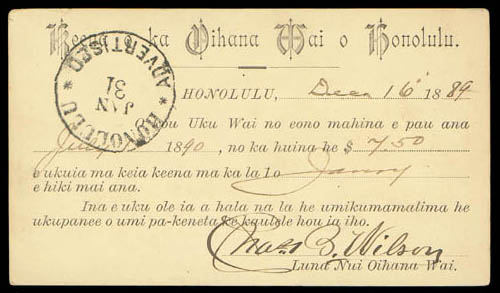 Keena o ka Oihana Wai o Honolulu.
HONOLULU ADVERTISED
JAN
31
HONOLULU, Decr 16 1889
ou Uku Wai no eono mahina e pau ana
July 1890, no ka huina he $ 7.50
e ukuia ma keia keena ma ka la 1o
e hiki mai ana.
Ina e uku ole ia a hala na la he umikumamalima he
ukupanee o umi pa-keneta ke kaulele hou ia iho.
Chas B. Wilson
Luna Nui Oihana Wai.